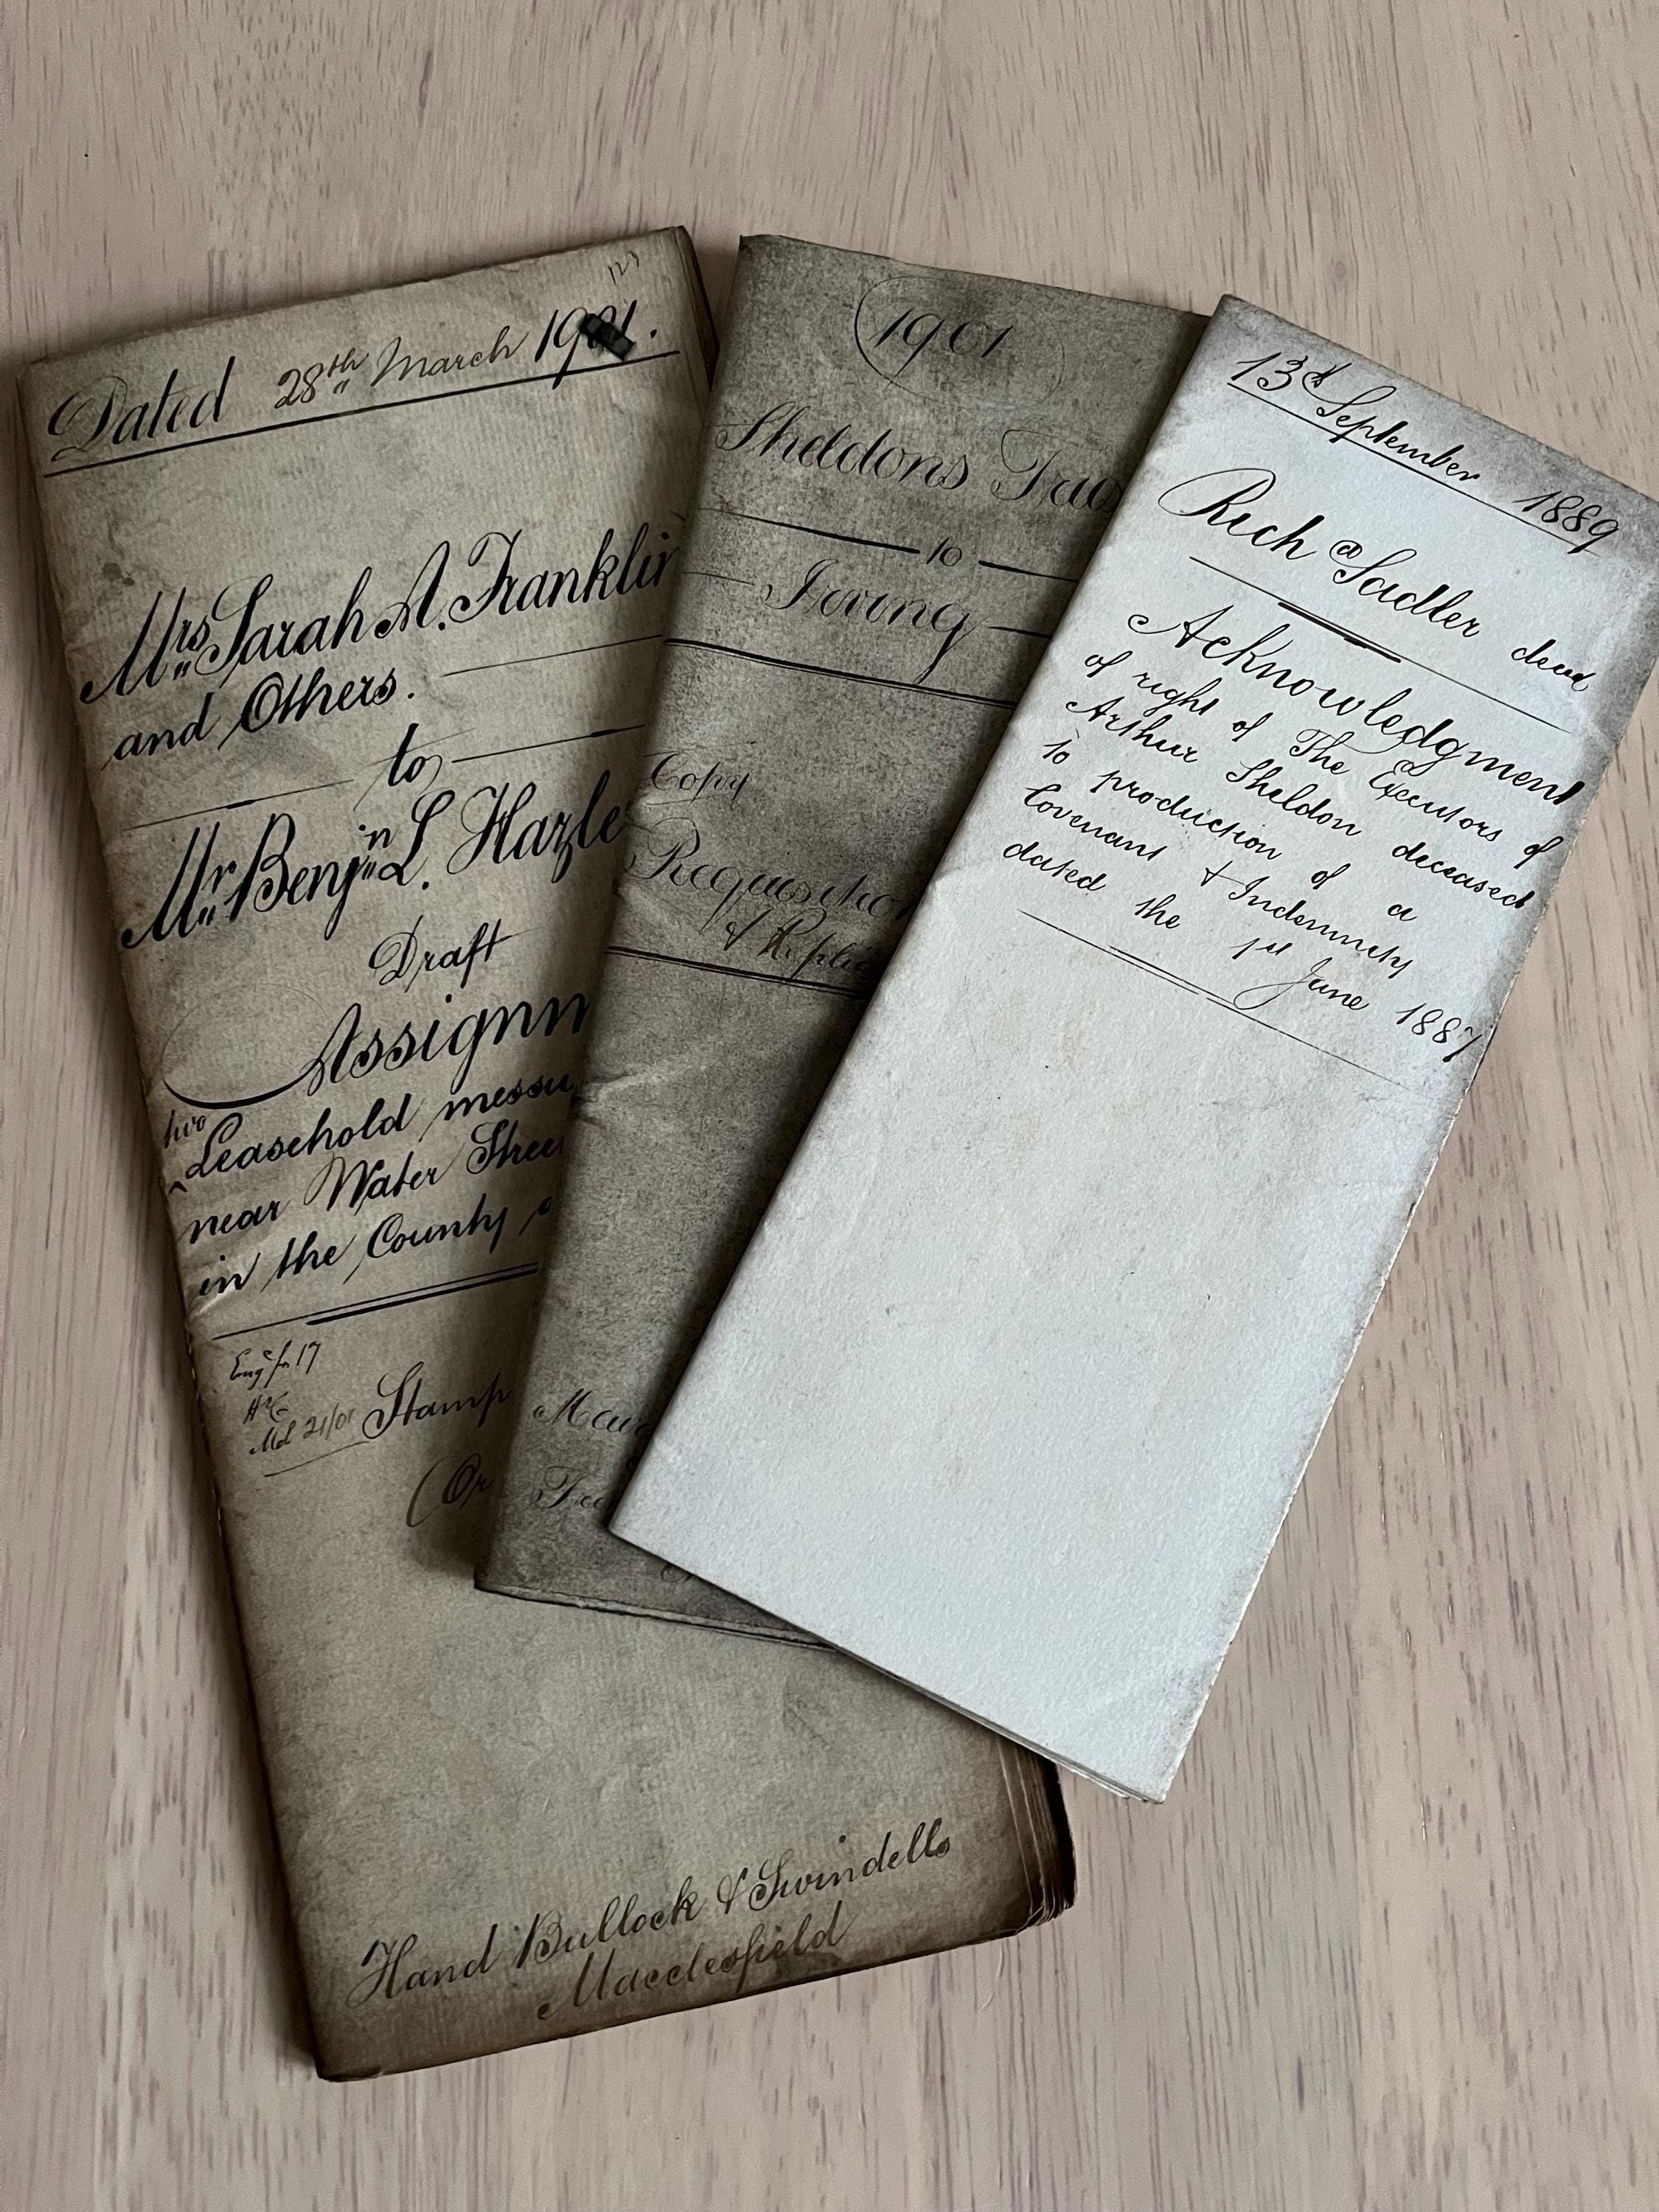 Dated 28th March 1901.
Mrs Sarah A. Franklin
and Others.
to
Mr Benjin L. Hazle
Draft
Assignm
two
Leasehold messu
near Water Stree
in the County
Stamp
(Or
Hand Bullock & Swindells
Macclesfield
1901
Sheldons
to
Irving
Copy
Requisitio
& Replie
13th September 1889
Rich d Sadler decd
Acknowledgment
of right of The Executors of
Arthur Sheldon deceased
to production of a
Covenant & Indemnity
dated the 1st June 1887